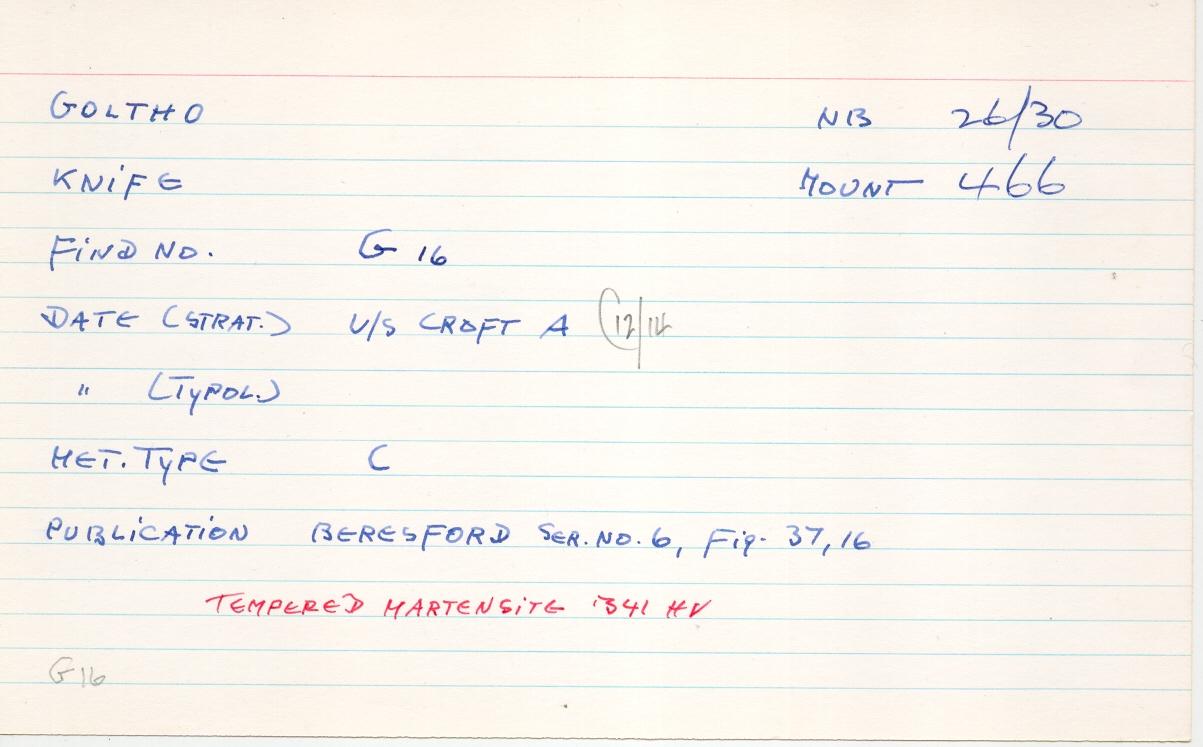 GOLTHO NB 26/30
KNIFE MOUNT 466
FIND NO. G 16
DATE (STRAT.) U/S CROFT A (12/14
" (TYPOL.)
MET. TYPE C
PUBLICATION BERESFORD SER. NO. 6, Fig. 37, 16
TEMPERED MARTENSITE 341 HV
G16